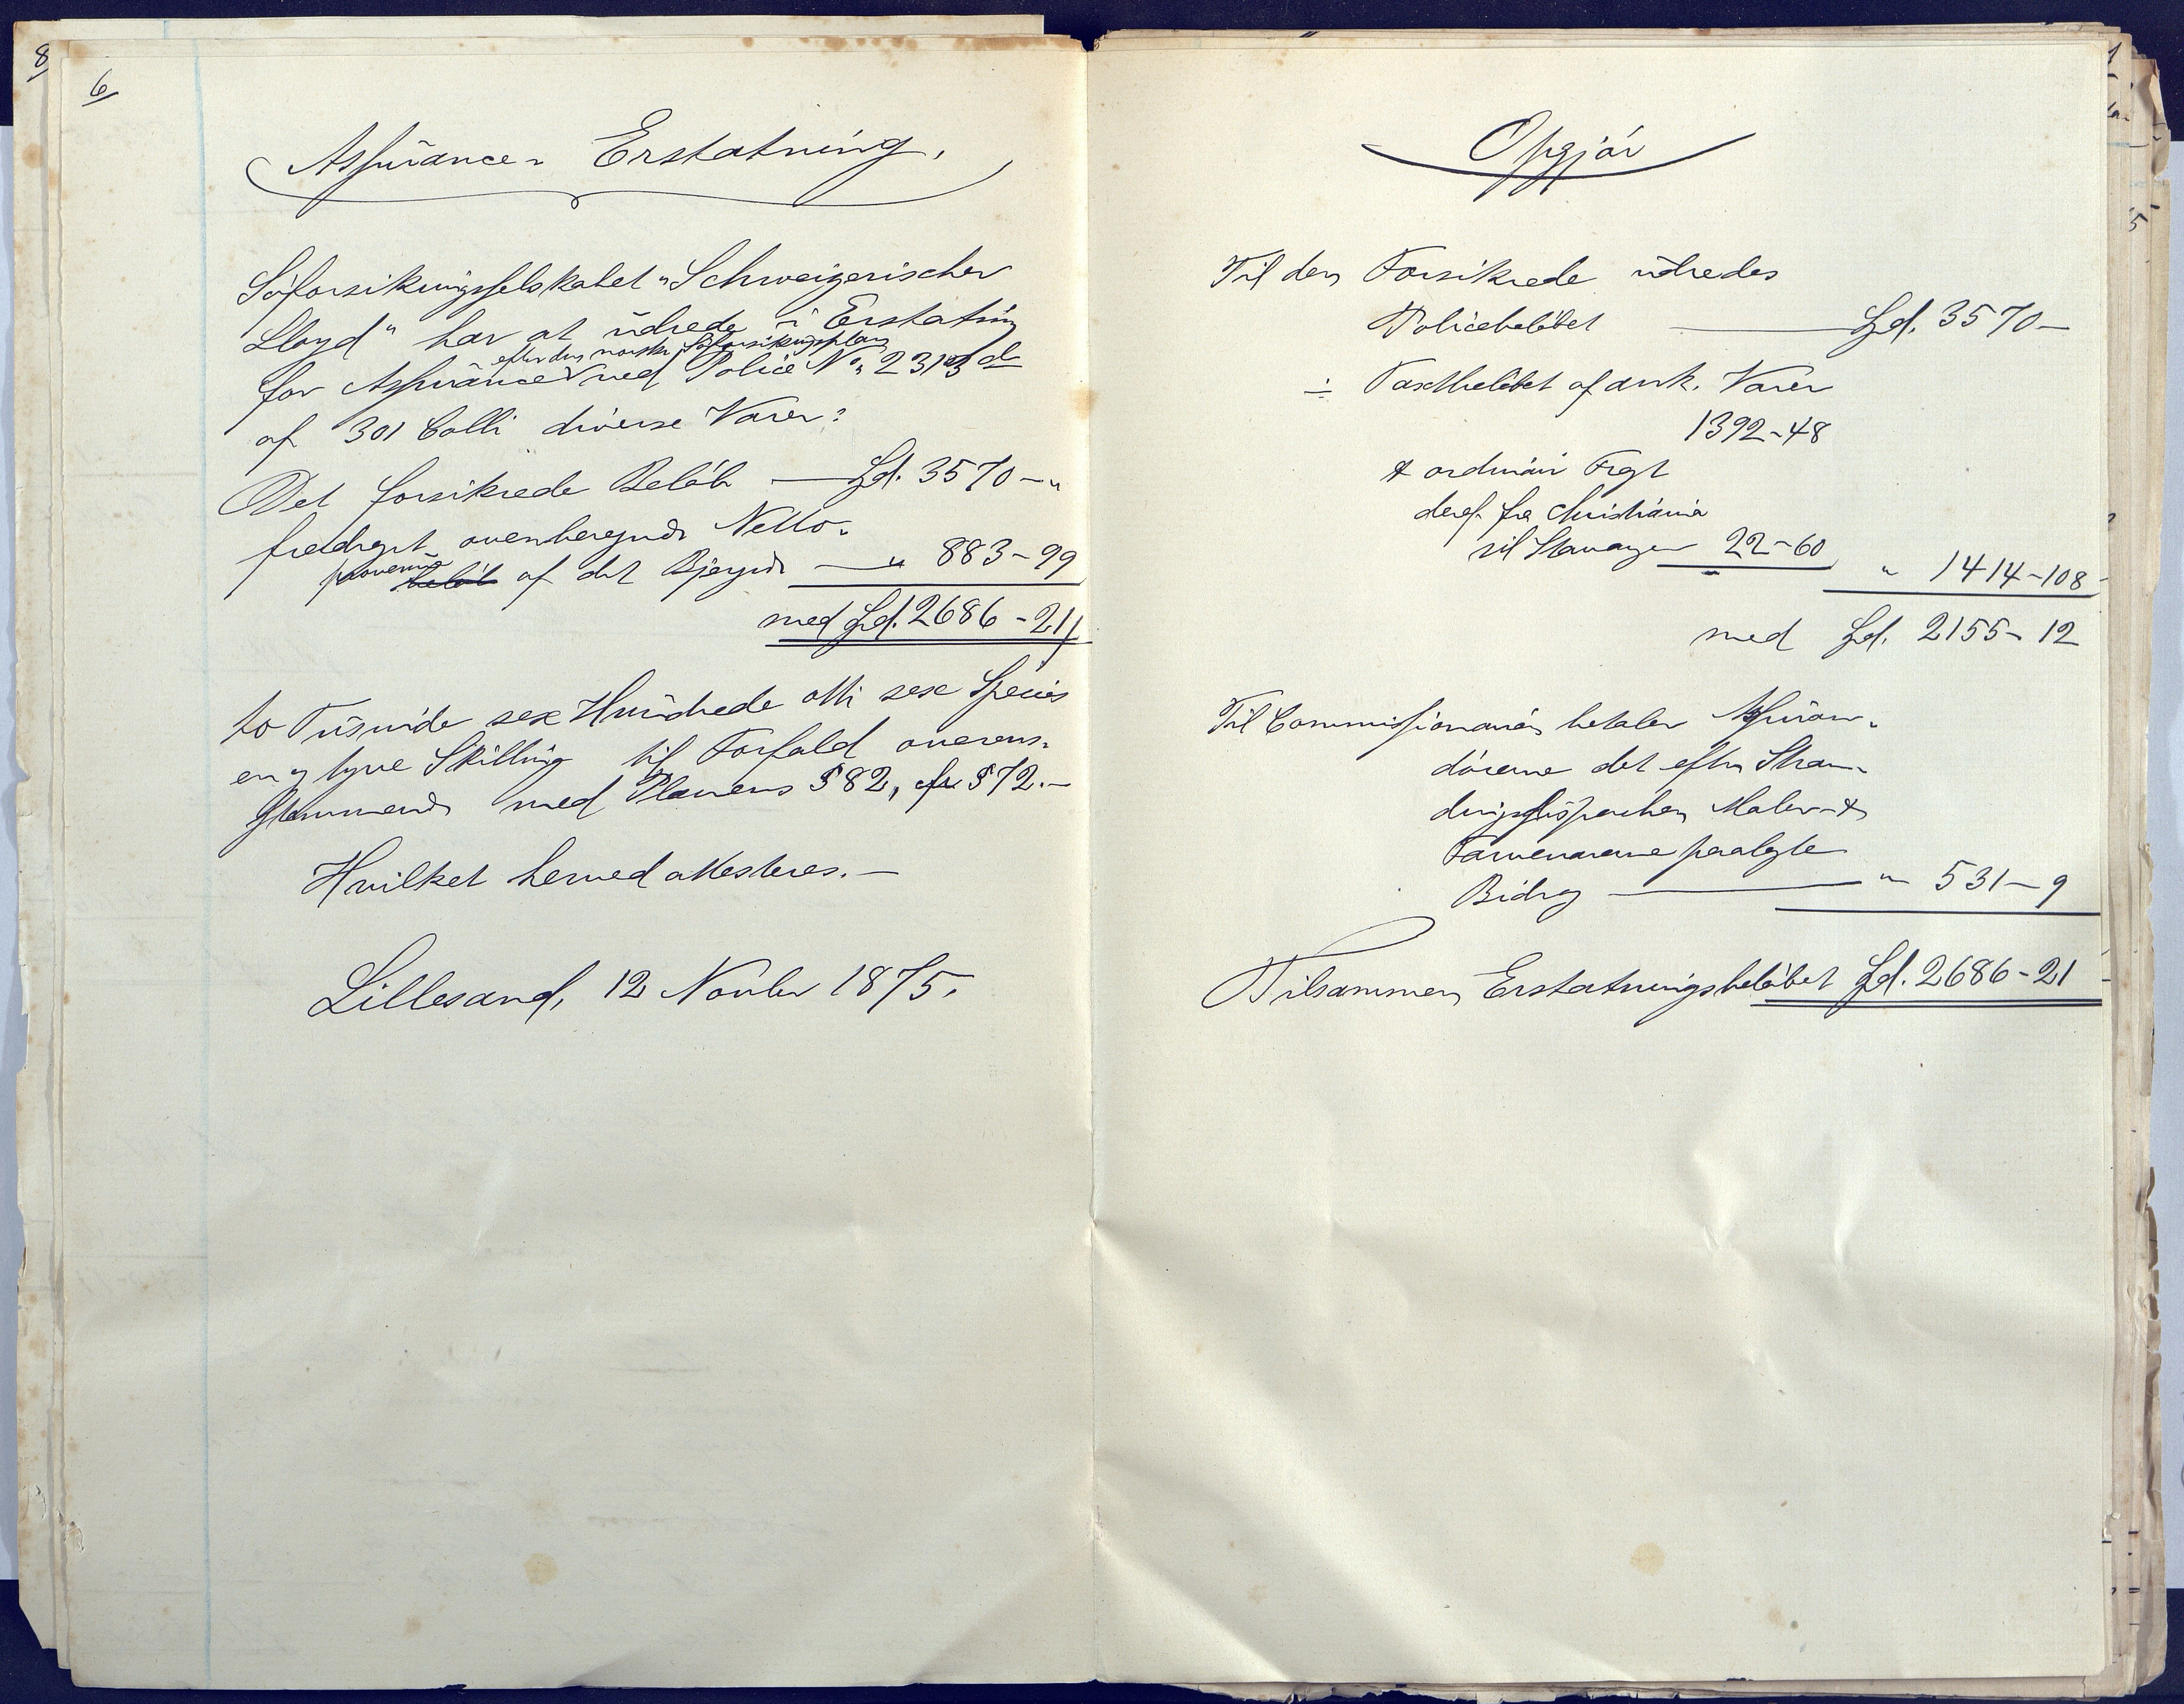 8/
6/
Assurance-Erstatning.
Söforsikringsselskabet "Schweizerischer
Lloyd" har at udrede i Erstatning
efter den norske Söforsikringsplan
for Assurance ved Police No. 2313
af 301 Colli diverse Varer:
Det forsikrede Belöb — Spd. 3570 — "
fradraget ovenberegnede Netto-
provenu
belöb af det Bjergede — " 883 - 99
med Spd. 2686 - 21
to Tusinde sex Hundrede otti sex Species
en og tyve Skilling til Forfald overens-
stemmende med Planens § 82, cfr § 72. —
Hvilket herved attesteres. —
Lillesand, 12 Novbr 1875.
Opgjör
Til den Forsikrede udredes
Policebelöbet — Spd. 3570 —
÷ Taxtbelöbet af ank. Varer
1392 - 48
& ordinair Fragt
deraf fra Christiania
til Stavanger 22 - 60 " 1414 - 108
med Spd. 2155 - 12
Til Commissionairen betaler Assuran-
dörerne det efter Stran-
dingsdispachen Maler- &
Farvevarerne paalagte
Bidrag — " 531 - 9
Tilsammen Erstatningsbelöbet Spd. 2686 - 21